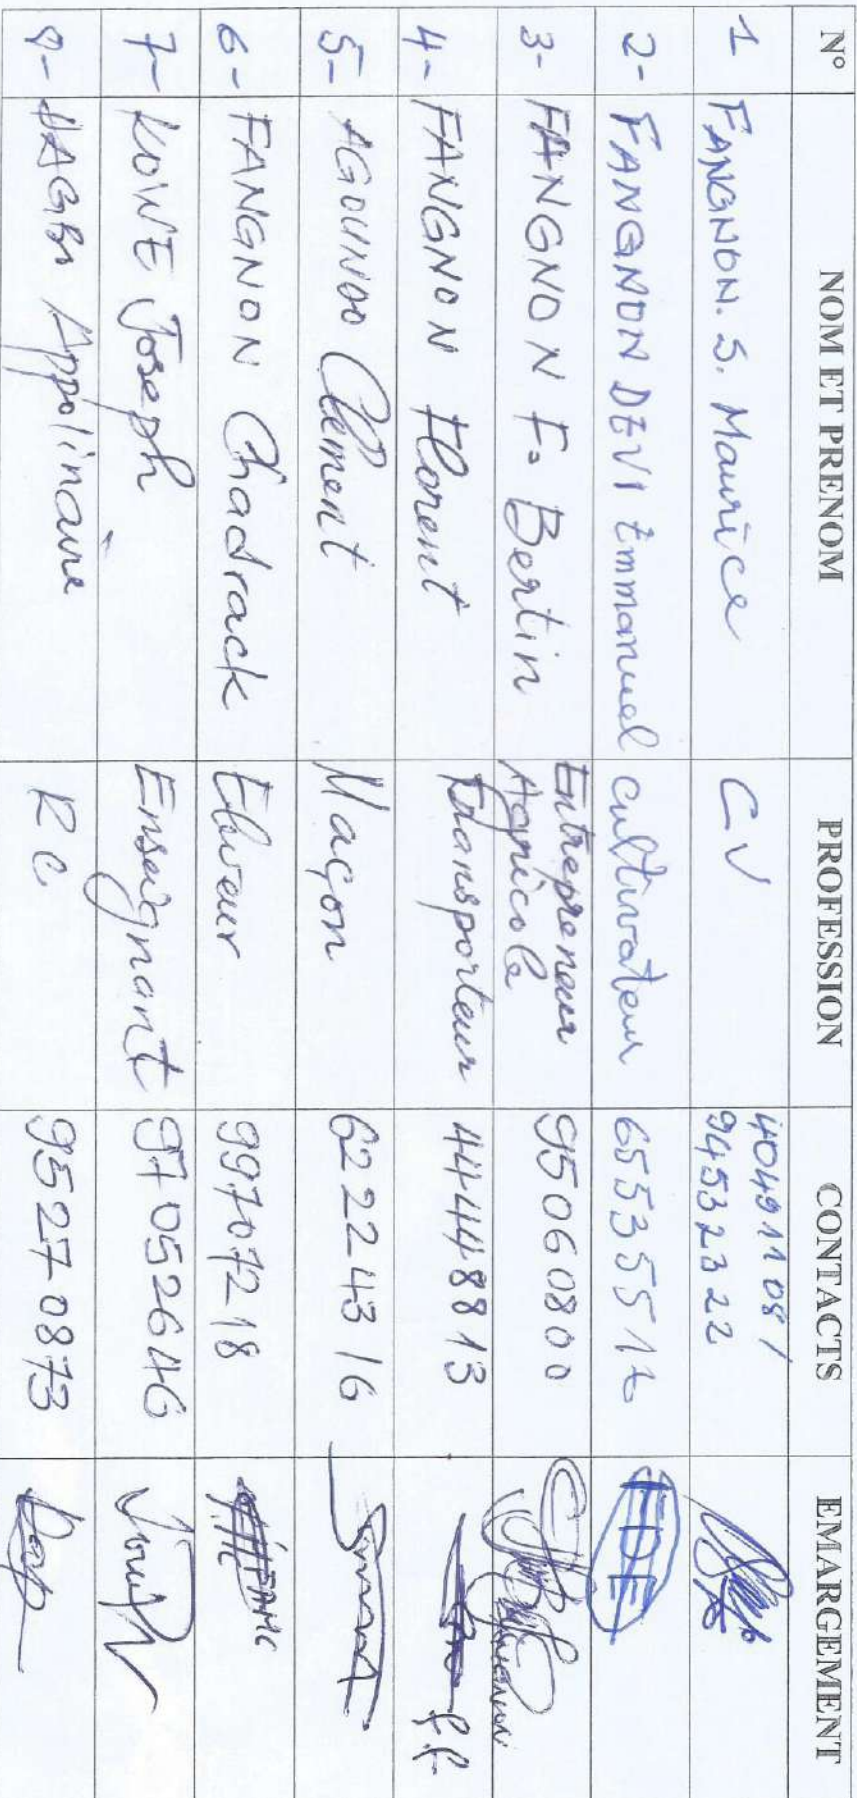 N° NOM ET PRENOM PROFESSION CONTACTS EMARGEMENT
1 FANGNON. S. Maurice CV 40491108 / 94532322
2- FANGNON DEVI Emmanuel cultivateur 655355 FDE
3- FANGNON F. Bertin Entrepreneur Agricole 95060800
4- FANGNON Florent Transporteur 44448813
5- AGOUNDO Clément Maçon 62224316
6- FANGNON Chadrack Eleveur 99707218
7- KOWE Joseph Enseignant 97052646
8- Appolinaire RC 95270873